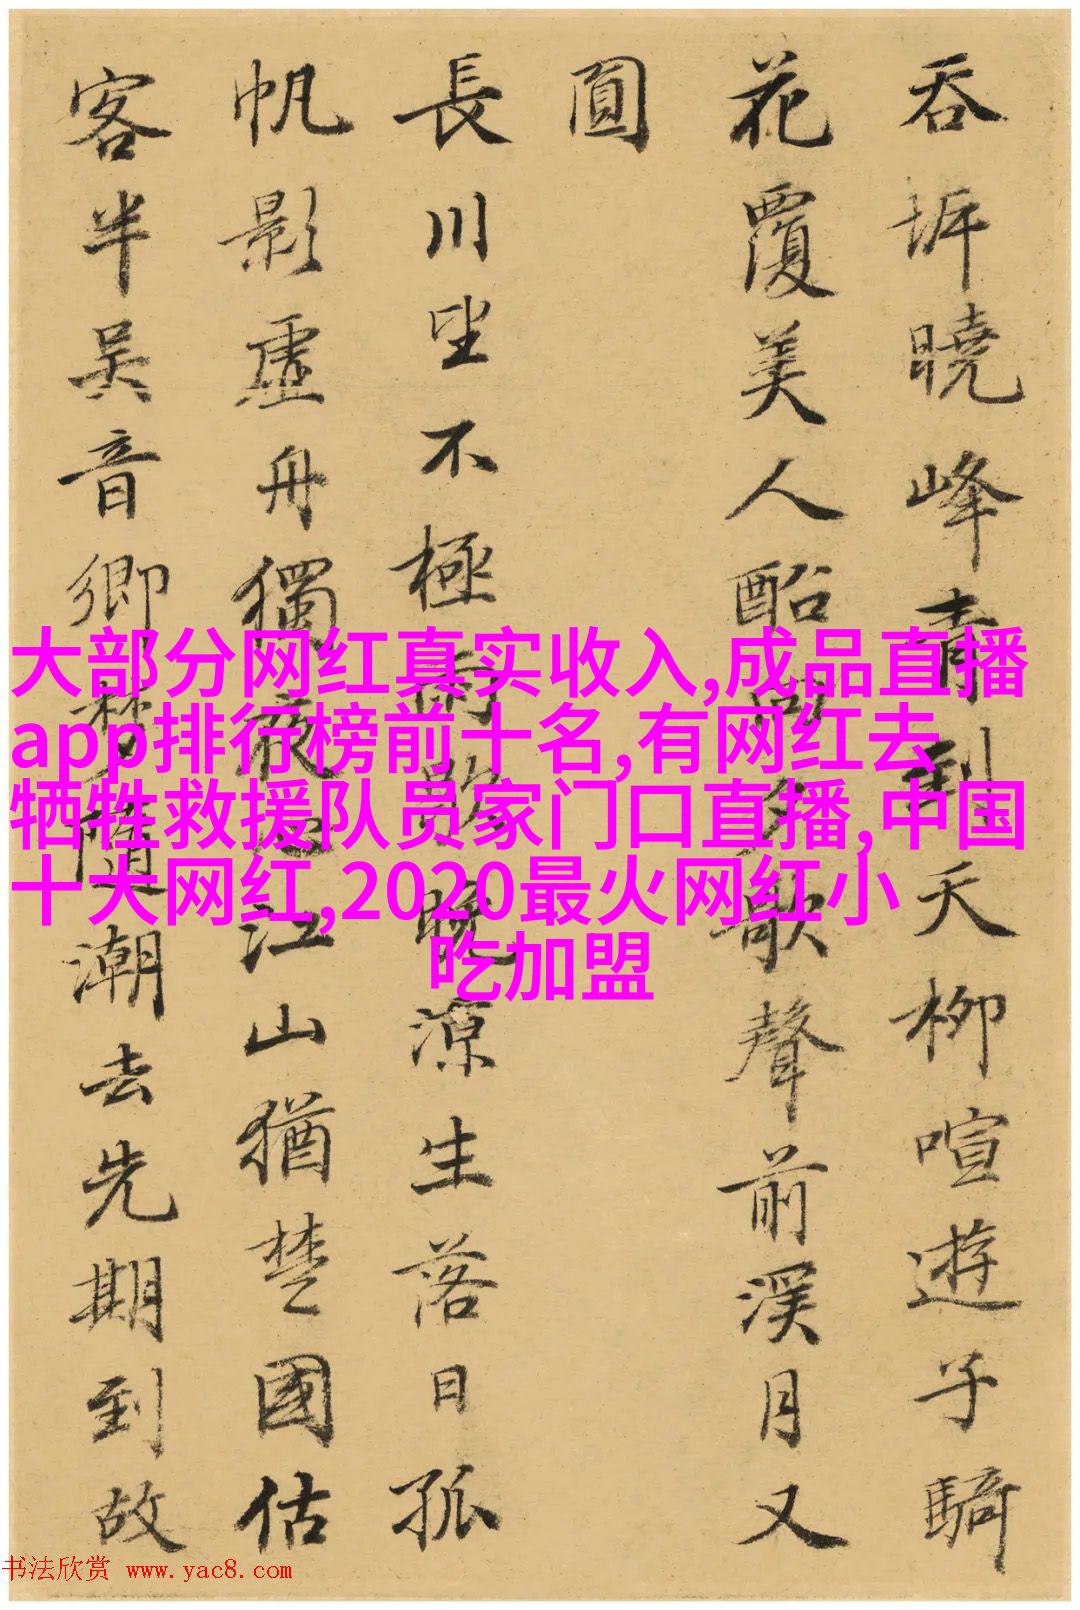 吞坼曉峰青到天柳喧遊子騎
花覆美人船向夕歌聲前溪月又
圓
長川望不極雨歇晚涼生落日孤
帆影虛舟獨夜心江山猶楚國估
客半吳音鄉夢隨潮去先期到故
大部分网红真实收入,成品直播
app排行榜前十名,有网红去
牺牲救援队员家门口直播,中国
十大网红,2020最火网红小
吃加盟
书法欣赏 www.yac8.com